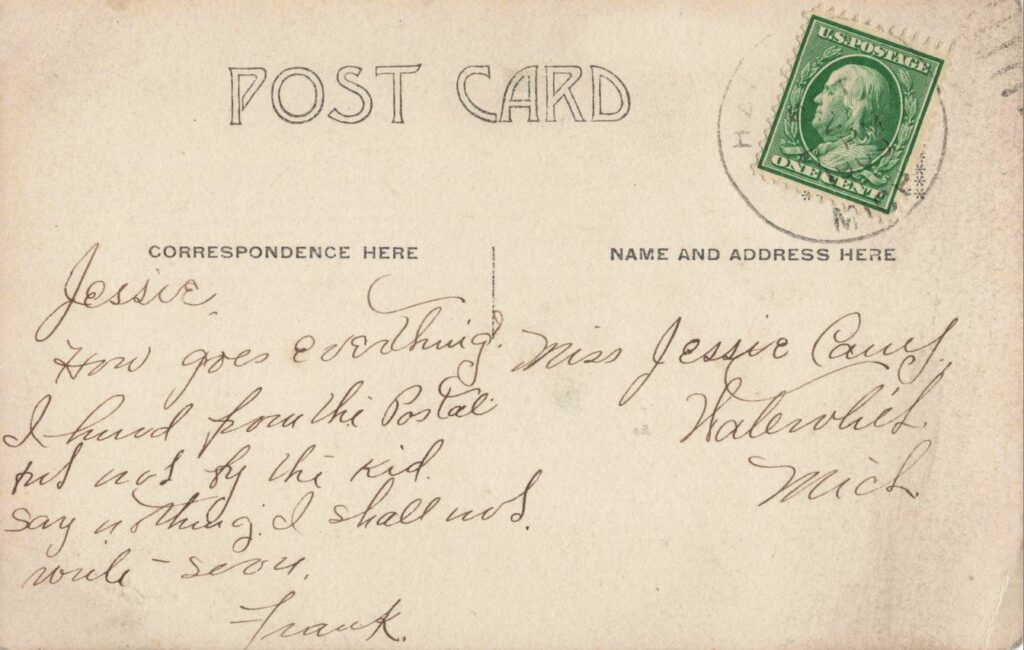 POST CARD
U.S. POSTAGE
ONE CENT
CORRESPONDENCE HERE
NAME AND ADDRESS HERE
Jessie,
How goes everthing.
I heard from the Postal
but not by the kid.
say nothing. I shall not.
write - soon.
Frank.
Miss Jessie
Watervliet.
Mich